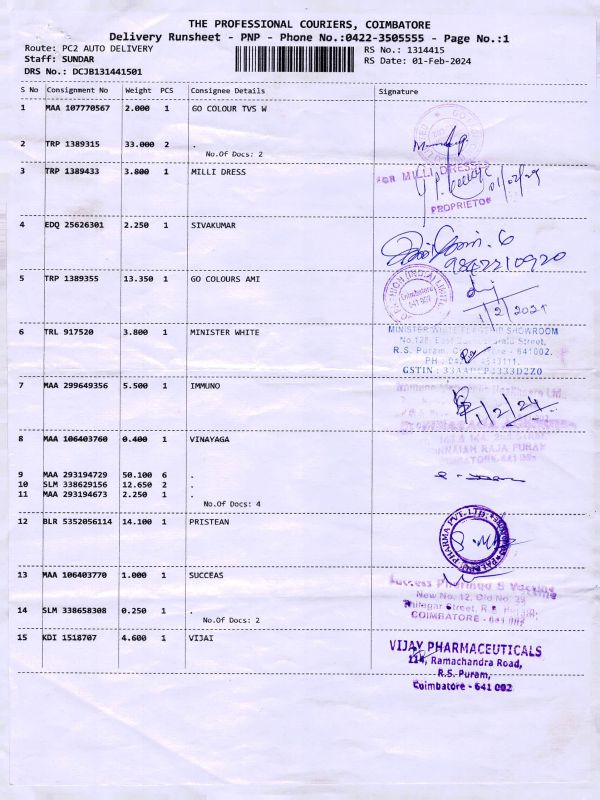 THE PROFESSIONAL COURIERS, COIMBATORE
Delivery Runsheet - PNP - Phone No.:0422-3505555 - Page No.:1
Route: PC2 AUTO DELIVERY RS No.: 1314415
Staff: SUNDAR RS Date: 01-Feb-2024
DRS No.: DCJB131441501
S No Consignment No Weight PCS Consignee Details Signature
1 MAA 107770567 2.000 1 GO COLOUR TVS W
2 TRP 1389315 33.000 2 .
No.Of Docs: 2
3 TRP 1389433 3.800 1 MILLI DRESS
FOR MILLI DRESSES
01/02/24
PROPRIETOR
4 EDQ 25626301 2.250 1 SIVAKUMAR
9842210920
5 TRP 1389355 13.350 1 GO COLOURS AMI
Coimbatore
641 002
1/2/2024
6 TRL 917520 3.800 1 MINISTER WHITE
SHOWROOM
Street,
R.S. Puram, 641002.
GSTIN :
7 MAA 299649356 5.500 1 IMMUNO
1/2/24
8 MAA 106403760 0.400 1 VINAYAGA
RAJA PURAM
9 MAA 293194729 50.100 6 .
10 SLM 338629156 12.650 2 .
11 MAA 293194673 2.250 1 .
No.Of Docs: 4
12 BLR 5352056114 14.100 1 PRISTEAN
PHARMA PVT. LTD.
13 MAA 106403770 1.000 1 SUCCEAS
Success Pharma & Vaccine
New No. 12, Old No. 29
Street, R.S. Puram,
COIMBATORE - 641 002
14 SLM 338658308 0.250 1 .
No.Of Docs: 2
15 KDI 1518707 4.600 1 VIJAI
VIJAY PHARMACEUTICALS
114, Ramachandra Road,
R.S. Puram,
Coimbatore - 641 002